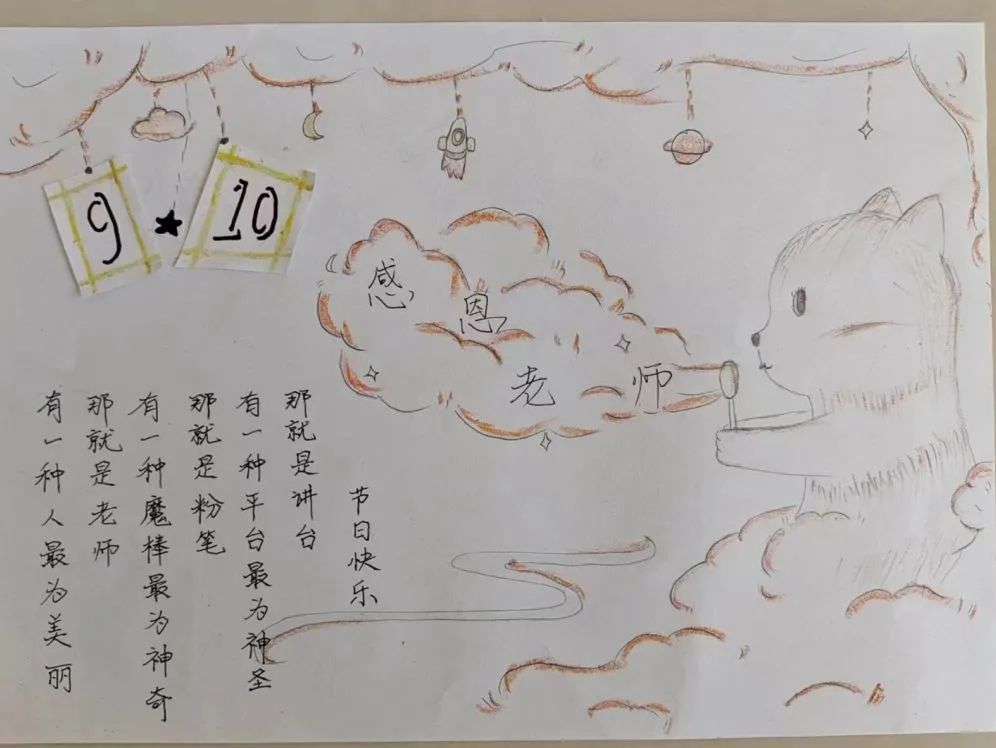 9 ★ 10
感恩老师
有一种人最为美丽
那就是老师
有一种魔棒最为神奇
那就是粉笔
有一种平台最为神圣
那就是讲台
节日快乐